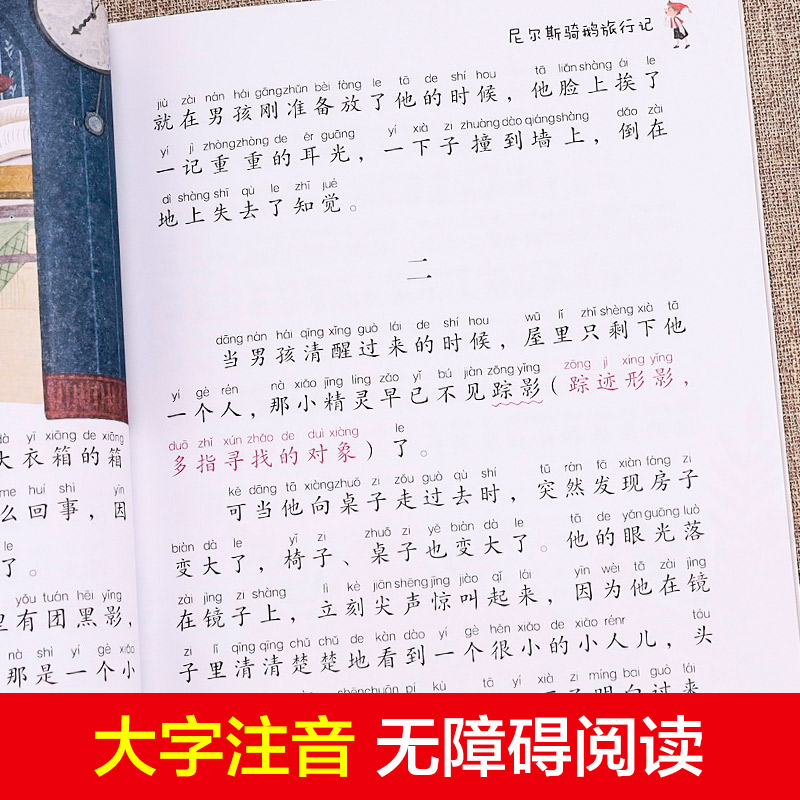 dà yī xiāng de xiāng
大衣箱的箱
me huí shì yīn
么回事，因
le
了。
yǒu tuán hēi yǐng
里有团黑影，
nà shì yí gè xiǎo
那是一个小
尼尔斯骑鹅旅行记
jiù zài nán hái gāng zhǔn bèi fàng le tā de shí hou tā liǎn shàng ái le
就在男孩刚准备放了他的时候，他脸上挨了
yí jì zhòng zhòng de ěr guāng yí xià zi zhuàng dào qiáng shàng dǎo zài
一记重重的耳光，一下子撞到墙上，倒在
dì shàng shī qù le zhī jué
地上失去了知觉。
二
dāng nán hái qīng xǐng guò lái de shí hou wū lǐ zhǐ shèng xià tā
当男孩清醒过来的时候，屋里只剩下他
yí gè rén nà xiǎo jīng líng zǎo yǐ bú jiàn zōng yǐng zōng jì xíng yǐng
一个人，那小精灵早已不见踪影（踪迹形影，
duō zhǐ xún zhǎo de duì xiàng le
多指寻找的对象）了。
kě dāng tā xiàng zhuō zi zǒu guò qù shí tū rán fā xiàn fáng zi
可当他向桌子走过去时，突然发现房子
biàn dà le yǐ zi zhuō zi yě biàn dà le tā de yǎn guāng luò
变大了，椅子、桌子也变大了。他的眼光落
zài jìng zi shàng lì kè jiān shēng jīng jiào qǐ lái yīn wèi tā zài jìng
在镜子上，立刻尖声惊叫起来，因为他在镜
zi lǐ qīng qīng chǔ chǔ de kàn dào yí gè hěn xiǎo de xiǎo rénr tóu
子里清清楚楚地看到一个很小的小人儿，头
shēn chuān pí kù tā yí xià zi míng bai guò lái
子明白过来
大字注音 无障碍阅读